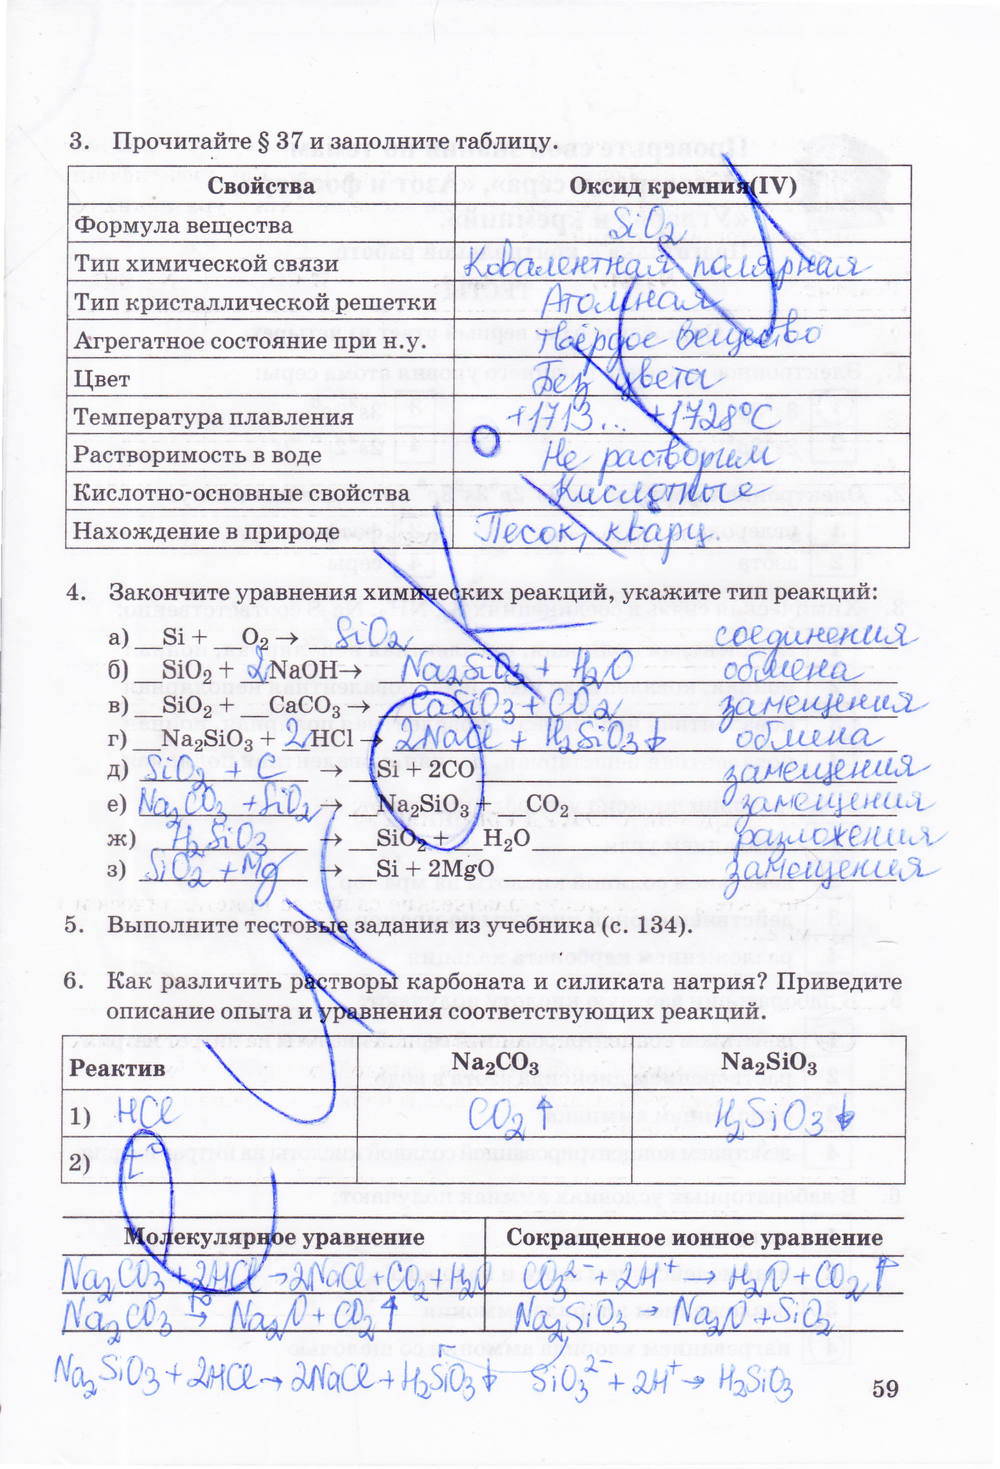 3. Прочитайте § 37 и заполните таблицу.
Свойства Оксид кремния(IV)
Формула вещества SiO2
Тип химической связи Ковалентная полярная
Тип кристаллической решетки Атомная
Агрегатное состояние при н.у. Твёрдое вещество
Цвет Без цвета
Температура плавления +1713... +1728°C
Растворимость в воде Не растворим
Кислотно-основные свойства Кислотные
Нахождение в природе Песок, кварц.
4. Закончите уравнения химических реакций, укажите тип реакций:
а) Si + O2 → SiO2 соединения
б) SiO2 + 2NaOH → Na2SiO3 + H2O обмена
в) SiO2 + CaCO3 → CaSiO3 + CO2 замещения
г) Na2SiO3 + 2HCl → 2NaCl + H2SiO3↓ обмена
д) SiO2 + C → Si + 2CO замещения
е) Na2CO3 + SiO2 → Na2SiO3 + CO2 замещения
ж) H2SiO3 → SiO2 + H2O разложения
з) SiO2 + Mg → Si + 2MgO замещения
5. Выполните тестовые задания из учебника (с. 134).
6. Как различить растворы карбоната и силиката натрия? Приведите
описание опыта и уравнения соответствующих реакций.
Реактив Na2CO3 Na2SiO3
1) HCl CO2↑ H2SiO3↓
2) t°
Молекулярное уравнение Сокращенное ионное уравнение
Na2CO3 + 2HCl → 2NaCl + CO2 + H2O CO3²⁻ + 2H⁺ → H2O + CO2↑
Na2CO3 t°→ Na2O + CO2↑ Na2SiO3 → Na2O + SiO2
Na2SiO3 + 2HCl → 2NaCl + H2SiO3↓ SiO3²⁻ + 2H⁺ → H2SiO3
59